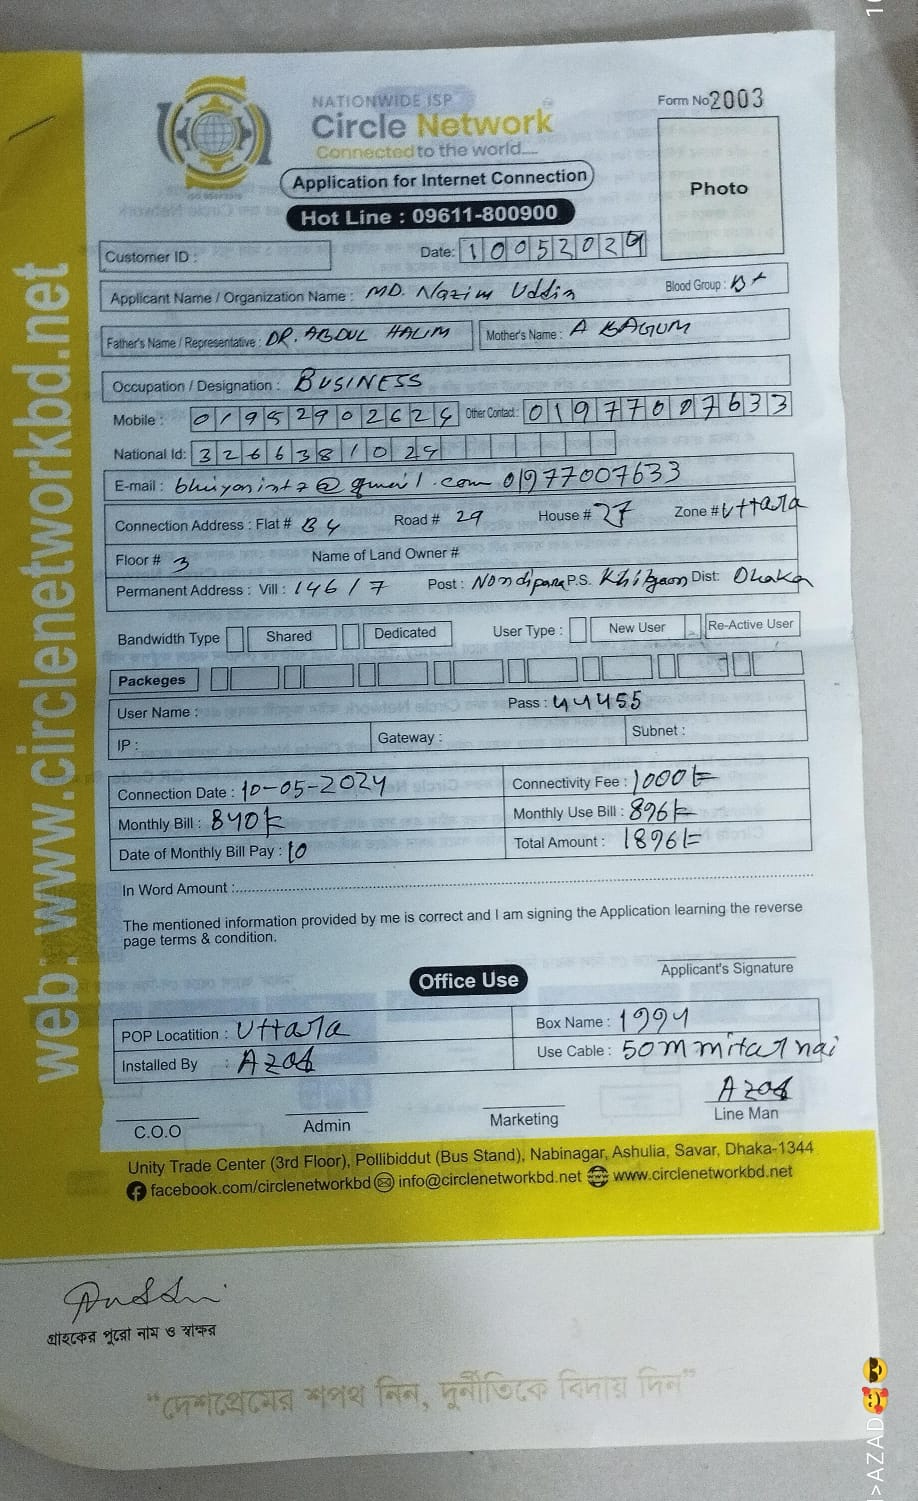 NATIONWIDE ISP
Circle Network
Connected to the world....
Form No 2003
Application for Internet Connection
Photo
Hot Line : 09611-800900
Customer ID :
Date: 10052024
Applicant Name / Organization Name : MD. Nazim Uddin Blood Group : B+
Father's Name / Representative : DR. ABDUL HALIM Mother's Name : A BAGUM
Occupation / Designation : BUSINESS
Mobile : 01952902624 Other Contact : 01977007633
National Id: 3266381024
E-mail : @gmail.com 01977007633
Connection Address : Flat # B4 Road # 29 House # 27 Zone # Uttara
Floor # 3 Name of Land Owner #
Permanent Address : Vill : 146/7 Post : Nondipara P.S. Khilgaon Dist: Dhaka
Bandwidth Type Shared Dedicated User Type : New User Re-Active User
Packeges
User Name : Pass : 44455
IP : Gateway : Subnet :
Connection Date : 10-05-2024 Connectivity Fee : 1000/=
Monthly Bill : 840/= Monthly Use Bill : 896/=
Date of Monthly Bill Pay : 10 Total Amount : 1896/=
In Word Amount :
The mentioned information provided by me is correct and I am signing the Application learning the reverse
page terms & condition.
Applicant's Signature
Office Use
POP Locatition : Uttara Box Name : 1994
Installed By : Azad Use Cable : 50m mitar nai
Azad
C.O.O Admin Marketing Line Man
Unity Trade Center (3rd Floor), Pollibiddut (Bus Stand), Nabinagar, Ashulia, Savar, Dhaka-1344
facebook.com/circlenetworkbd info@circlenetworkbd.net www.circlenetworkbd.net
web: www.circlenetworkbd.net
গ্রাহকের পুরো নাম ও স্বাক্ষর
“দেশপ্রেমের শপথ নিন, দুর্নীতিকে বিদায় দিন”
>AZAD🥰😎